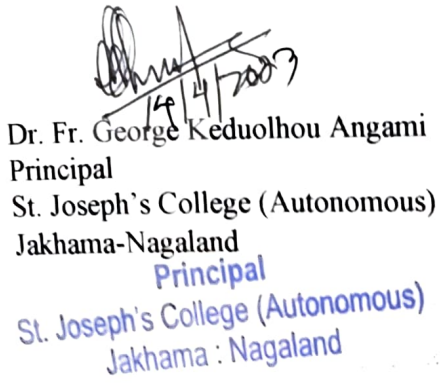 14/4/2023
Dr. Fr. George Keduolhou Angami
Principal
St. Joseph's College (Autonomous)
Jakhama-Nagaland
Principal
St. Joseph's College (Autonomous)
Jakhama : Nagaland